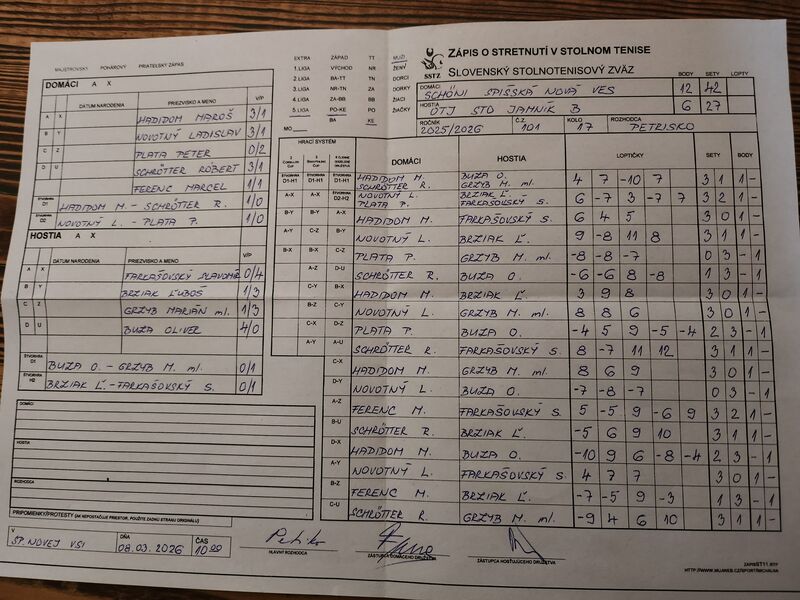 MAJSTROVSKÝ POHÁROVÝ PRIATEĽSKÝ ZÁPAS
DOMÁCI A X
DÁTUM NARODENIA PRIEZVISKO A MENO V/P
A X HADIDOM MAROŠ 3/1
B Y NOVOTNÝ LADISLAV 3/1
C Z PLATA PETER 0/2
D U SCHRÖTTER RÓBERT 3/1
FERENC MARCEL 1/1
ŠTVORHRA D1 HADIDOM M. - SCHRÖTTER R. 1/0
ŠTVORHRA D2 NOVOTNÝ L. - PLATA P. 1/0
HOSTIA A X
DÁTUM NARODENIA PRIEZVISKO A MENO V/P
A X FARKAŠOVSKÝ SLAVOMÍR 0/4
B Y BRZIAK ĽUBOŠ 1/3
C Z GRZYB MARIÁN ml. 1/3
D U BUZA OLIVER 4/0
ŠTVORHRA D1 BUZA O. - GRZYB M. ml. 0/1
ŠTVORHRA H2 BRZIAK Ľ. - FARKAŠOVSKÝ S. 0/1
DOMÁCI
HOSTIA
ROZHODCA
PRIPOMIENKY/PROTESTY (AK NEPOSTAČUJE PRIESTOR, POUŽITE ZADNÚ STRANU ORIGINÁLU)
V SP. NOVEJ VSI DŇA 08.03.2026 ČAS 10:00
HLAVNÝ ROZHODCA
ZÁSTUPCA DOMÁCEHO DRUŽSTVA
ZÁSTUPCA HOSŤUJÚCEHO DRUŽSTVA
EXTRA ZÁPAD TT MUŽI
1.LIGA VÝCHOD NR ŽENY
2.LIGA BA-TT TN DORCI
3.LIGA NR-TN ZA DORKY
4.LIGA ZA-BB BB ŽIACI
5.LIGA PO-KE PO ŽIAČKY
MO BA KE
SSTZ
ZÁPIS O STRETNUTÍ V STOLNOM TENISE
SLOVENSKÝ STOLNOTENISOVÝ ZVÄZ
BODY SETY LOPTY
DOMÁCI SCHÖNI SPIŠSKÁ NOVÁ VES 12 42
HOSTIA OTJ STO JAMNÍK B 6 27
ROČNÍK 2025/2026 Č.Z. 101 KOLO 17 ROZHODCA PETRISKO
HRACÍ SYSTÉM
DOMÁCI HOSTIA LOPTIČKY SETY BODY
D1-H1 D1-H1 D1-H1 HADIDOM M. SCHRÖTTER R. BUZA O. GRZYB M. ml. 4 7 -10 7 3 1 1 -
A-X A-X D2-H2 NOVOTNÝ L. PLATA P. BRZIAK Ľ. FARKAŠOVSKÝ S. 6 -7 3 -7 7 3 2 1 -
B-Y B-Y A-X HADIDOM M. FARKAŠOVSKÝ S. 6 4 5 3 0 1 -
A-Y C-Z B-Y NOVOTNÝ L. BRZIAK Ľ. 9 -8 11 8 3 1 1 -
B-X B-X C-Z PLATA P. GRZYB M. ml. -8 -8 -7 0 3 - 1
A-Z D-U SCHRÖTTER R. BUZA O. -6 -6 8 -8 1 3 - 1
C-Y B-X HADIDOM M. BRZIAK Ľ. 3 9 8 3 0 1 -
B-Z C-Y NOVOTNÝ L. GRZYB M. ml. 8 8 6 3 0 1 -
C-X D-Z PLATA P. BUZA O. -4 5 9 -5 -4 2 3 - 1
A-Y A-U SCHRÖTTER R. FARKAŠOVSKÝ S. 8 -7 11 12 3 1 1 -
C-X HADIDOM M. GRZYB M. ml. 8 6 9 3 0 1 -
D-Y NOVOTNÝ L. BUZA O. -7 -8 -7 0 3 - 1
A-Z FERENC M. FARKAŠOVSKÝ S. 5 -5 9 -6 9 3 2 1 -
B-U SCHRÖTTER R. BRZIAK Ľ. -5 6 9 10 3 1 1 -
D-X HADIDOM M. BUZA O. -10 9 6 -8 -4 2 3 - 1
A-Y NOVOTNÝ L. FARKAŠOVSKÝ S. 4 7 7 3 0 1 -
B-Z FERENC M. BRZIAK Ľ. -7 -5 9 -3 1 3 - 1
C-U SCHRÖTTER R. GRZYB M. ml. -9 4 6 10 3 1 1 -
ZAPISST11.RTF